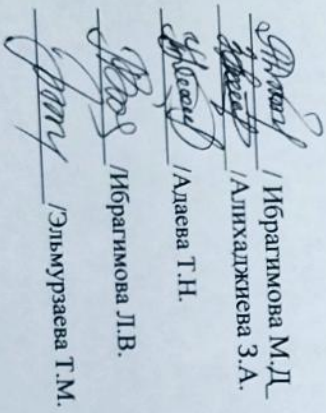 / Ибрагимова М.Д
/Алихаджиева З.А.
/Адаева Т.Н.
/Ибрагимова Л.В.
/Эльмурзаева Т.М.